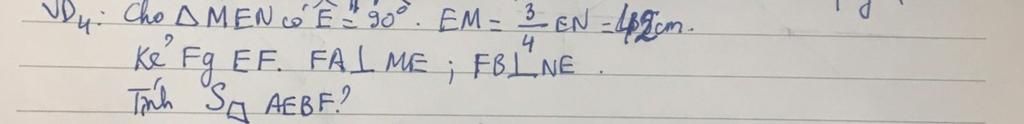 VD4: Cho Δ MEN có Ê = 90°. EM = 3/4 EN = cm.
Kẻ Fg EF. FA ⊥ ME ; FB ⊥ NE.
Tính S▱ AEBF?